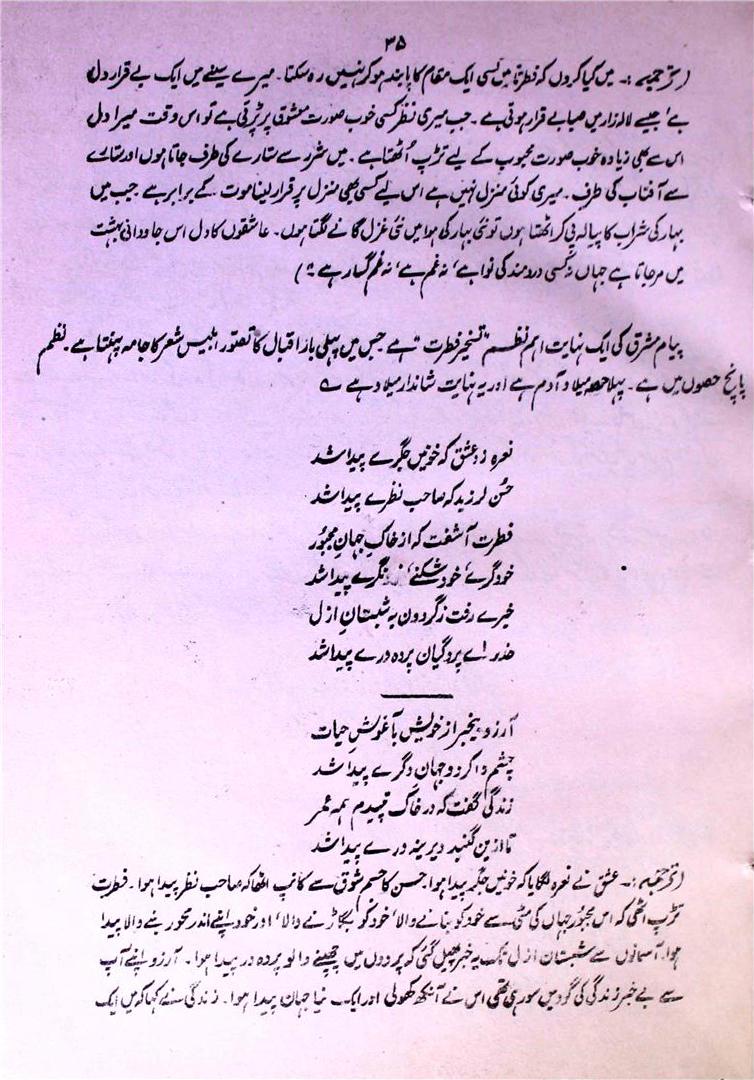 ۳۵
(ترجمہ :۔ میں کیا کروں کہ فطرتاً میں کسی ایک مقام کا پابند ہو کر نہیں رہ سکتا۔ میرے سینے میں ایک بے قرار دل
ہے جیسے لالہ زار میں صبا بے قرار ہوتی ہے۔ جب میری نظر کسی خوب صورت معشوق پر پڑتی ہے تو اس وقت میرا دل
اس سے بھی زیادہ خوب صورت محبوب کے لیے تڑپ اُٹھتا ہے۔ میں شرر سے ستارے کی طرف جاتا ہوں اور ستارے
سے آفتاب کی طرف۔ میری کوئی منزل نہیں ہے اس لیے کسی بھی منزل پر قرار لینا موت کے برابر ہے جب میں
بہار کی شراب کا پیالہ پی کر اٹھتا ہوں تو نئی بہار کی ہوا میں نئی غزل گانے لگتا ہوں۔ عاشقوں کا دل اس جاودانی بہشت
میں مر جاتا ہے جہاں نہ کسی درد مند کی نوا ہے، نہ غم ہے، نہ غم گسار ہے۔")
پیام مشرق کی ایک نہایت اہم نظم "تسخیر فطرت" ہے جس میں پہلی بار اقبال کا تصور ابلیس شعر کا جامہ پہنتا ہے۔ نظم
پانچ حصوں میں ہے۔ پہلا حصہ میلاد آدم ہے اور یہ نہایت شاندار میلاد ہے ے
نعرہ زد عشق کہ خونیں جگرے پیدا شد
حُسن لرزید کہ صاحب نظرے پیدا شد
فطرت آشفت کہ از خاکِ جہانِ مجبُور
خودگرے، خود شکنے، نگرے پیدا شد
خبرے رفت ز گردون بہ شبستانِ ازل
حذر اے پردگیان پردہ درے پیدا شد
آرزو بیخبر از خویش بآغوشِ حیات
چشم وا کرد و جہان دگرے پیدا شد
زندگی گفت کہ در خاک تپیدم ہمہ عمر
تا ازین گنبد دیرینہ درے پیدا شد
(ترجمہ :۔ عشق نے نعرہ لگایا کہ خونیں جگر پیدا ہوا۔ حسن کا جسم شوق سے کانپ اٹھا کہ صاحب نظر پیدا ہوا۔ فطرت
تڑپ اٹھی کہ اس مجبُور جہاں کی مٹی سے خود کو بنانے والا، خود کو بگاڑنے والا، اور خود اپنے اندر محو رہنے والا پیدا
ہوا۔ آسمانوں سے شبستان ازل تک یہ خبر پھیل گئی کہ پردوں میں چھپنے والو پردہ در پیدا ہوا۔ آرزو اپنے آپ
سے بے خبر زندگی کی گود میں سو رہی تھی اس نے آنکھ کھولی اور ایک نیا جہان پیدا ہوا۔ زندگی نے کہا کہ میں ایک